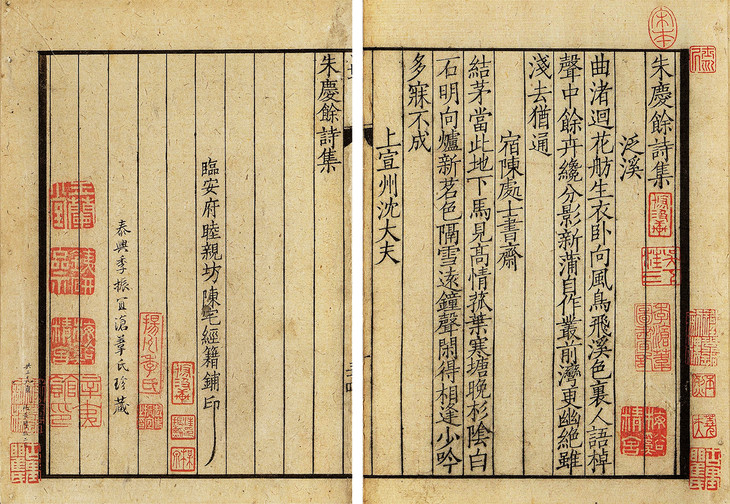 宋本
朱慶餘詩集
泛溪
曲渚迴花舫生衣卧向風鳥飛溪色裏人語棹
聲中餘卉纔分影新蒲自作叢前灣更幽絶雖
淺去猶通
宿陳處士書齋
結茅當此地下馬見高情菰葉寒塘晚杉陰白
石明向爐新茗色隔雪遠鐘聲閑得相逢少吟
多寐不成
上宣州沈大夫
梅谿精舍
朱慶餘詩集
臨安府睦親坊陳宅經籍鋪印
揚州季氏
泰興季振宜滄葦氏珍藏
辛夷館印